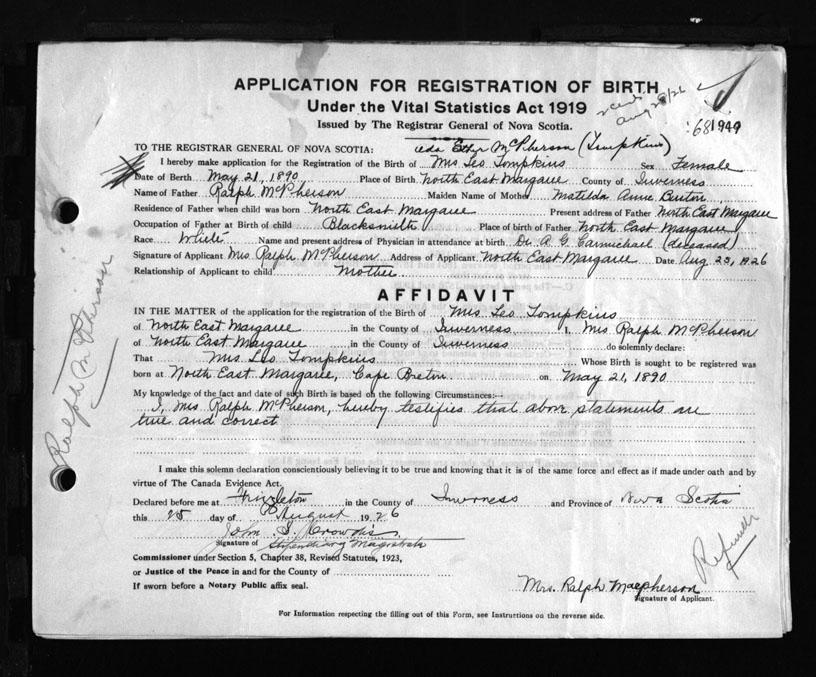 APPLICATION FOR REGISTRATION OF BIRTH
Under the Vital Statistics Act 1919
Issued by The Registrar General of Nova Scotia.
Aug 28/26
681949
TO THE REGISTRAR GENERAL OF NOVA SCOTIA: McPherson (Tompkins)
I hereby make application for the Registration of the Birth of Mrs Leo Tompkins Sex Female
Date of Birth May 21, 1890 Place of Birth North East Margaree County of Inverness
Name of Father Ralph McPherson Maiden Name of Mother Matilda Anne
Residence of Father when child was born North East Margaree Present address of Father North East Margaree
Occupation of Father at Birth of child Blacksmith Place of birth of Father North East Margaree
Race White Name and present address of Physician in attendance at birth Dr. A. G. Carmichael (deceased)
Signature of Applicant Mrs Ralph McPherson Address of Applicant North East Margaree Date Aug 25, 1926
Relationship of Applicant to child Mother
AFFIDAVIT
IN THE MATTER of the application for the registration of Birth of Mrs. Leo Tompkins
of North East Margaree in the County of Inverness I, Mrs Ralph McPherson
of North East Margaree in the County of Inverness do solemnly declare:
That Mrs. Leo Tompkins Whose Birth is sought to be registered was
born at North East Margaree, Cape Breton on May 21, 1890
My knowledge of the fact and date of such Birth is based on the following Circumstances:—
I, Mrs Ralph McPherson, hereby testifies that above statements are
true and correct
I make this solemn declaration conscientiously believing it to be true and knowing that it is of the same force and effect as if made under oath and by
virtue of The Canada Evidence Act.
Declared before me at in the County of Inverness and Province of Nova Scotia
this 25 day of August 1926
John
Signature of Stipendiary Magistrate
Commissioner under Section 5, Chapter 38, Revised Statutes, 1923,
or Justice of the Peace in and for the County of
If sworn before a Notary Public affix seal.
Mrs. Ralph Macpherson
Signature of Applicant.
For Information respecting the filling out of this Form, see Instructions on the reverse side.
Ralph McPherson